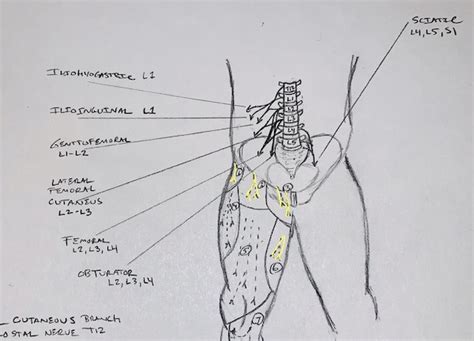 ILIOHYOGASTRIC L1
ILIOINGUINAL L1
GENITOFEMORAL
L1-L2
LATERAL
FEMORAL
CUTANEUS
L2-L3
FEMORAL
L2, L3, L4
OBTURATOR
L2, L3, L4
SCIATIC
L4, L5, S1
L CUTANEOUS BRANCH
COSTAL NERVE T12